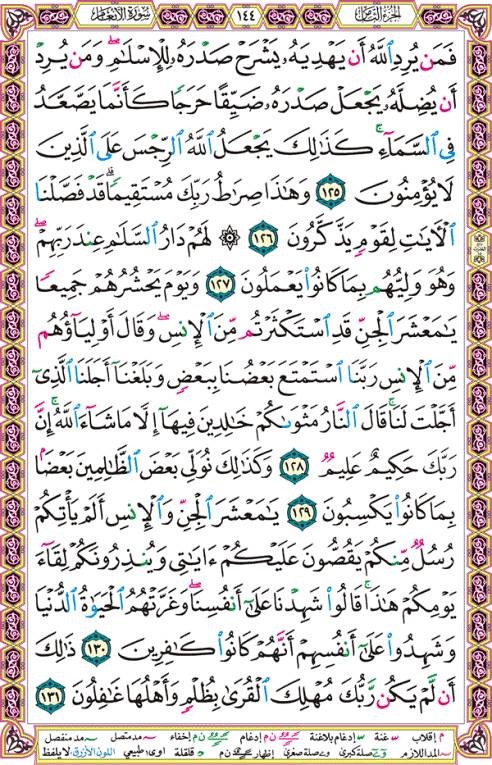 الجزء الثامن ١٤٤ سورة الأنعام
فَمَن يُرِدِ ٱللَّهُ أَن يَهْدِيَهُۥ يَشْرَحْ صَدْرَهُۥ لِلْإِسْلَٰمِ ۖ وَمَن يُرِدْ
أَن يُضِلَّهُۥ يَجْعَلْ صَدْرَهُۥ ضَيِّقًا حَرَجًا كَأَنَّمَا يَصَّعَّدُ
فِى ٱلسَّمَآءِ ۚ كَذَٰلِكَ يَجْعَلُ ٱللَّهُ ٱلرِّجْسَ عَلَى ٱلَّذِينَ
لَا يُؤْمِنُونَ ١٢٥ وَهَٰذَا صِرَٰطُ رَبِّكَ مُسْتَقِيمًا ۗ قَدْ فَصَّلْنَا
ٱلْءَايَٰتِ لِقَوْمٍ يَذَّكَّرُونَ ١٢٦ ۞ لَهُمْ دَارُ ٱلسَّلَٰمِ عِندَ رَبِّهِمْ ۖ
وَهُوَ وَلِيُّهُم بِمَا كَانُوا۟ يَعْمَلُونَ ١٢٧ وَيَوْمَ يَحْشُرُهُمْ جَمِيعًا
يَٰمَعْشَرَ ٱلْجِنِّ قَدِ ٱسْتَكْثَرْتُم مِّنَ ٱلْإِنسِ ۖ وَقَالَ أَوْلِيَآؤُهُم
مِّنَ ٱلْإِنسِ رَبَّنَا ٱسْتَمْتَعَ بَعْضُنَا بِبَعْضٍ وَبَلَغْنَآ أَجَلَنَا ٱلَّذِىٓ
أَجَّلْتَ لَنَا ۚ قَالَ ٱلنَّارُ مَثْوَىٰكُمْ خَٰلِدِينَ فِيهَآ إِلَّا مَا شَآءَ ٱللَّهُ ۗ إِنَّ
رَبَّكَ حَكِيمٌ عَلِيمٌ ١٢٨ وَكَذَٰلِكَ نُوَلِّى بَعْضَ ٱلظَّٰلِمِينَ بَعْضًۢا
بِمَا كَانُوا۟ يَكْسِبُونَ ١٢٩ يَٰمَعْشَرَ ٱلْجِنِّ وَٱلْإِنسِ أَلَمْ يَأْتِكُمْ
رُسُلٌ مِّنكُمْ يَقُصُّونَ عَلَيْكُمْ ءَايَٰتِى وَيُنذِرُونَكُمْ لِقَآءَ
يَوْمِكُمْ هَٰذَا ۚ قَالُوا۟ شَهِدْنَا عَلَىٰٓ أَنفُسِنَا ۖ وَغَرَّتْهُمُ ٱلْحَيَوٰةُ ٱلدُّنْيَا
وَشَهِدُوا۟ عَلَىٰٓ أَنفُسِهِمْ أَنَّهُمْ كَانُوا۟ كَٰفِرِينَ ١٣٠ ذَٰلِكَ
أَن لَّمْ يَكُن رَّبُّكَ مُهْلِكَ ٱلْقُرَىٰ بِظُلْمٍ وَأَهْلُهَا غَٰفِلُونَ ١٣١
م إقلاب س غنة س إدغام بلاغنة ن م إدغام ن م إخفاء مد متصل مد منفصل
المد اللازم صلة كبرى صلة صغرى إظهار ن م قلقلة اوى طبيعي اللون الأزرق لا يلفظ